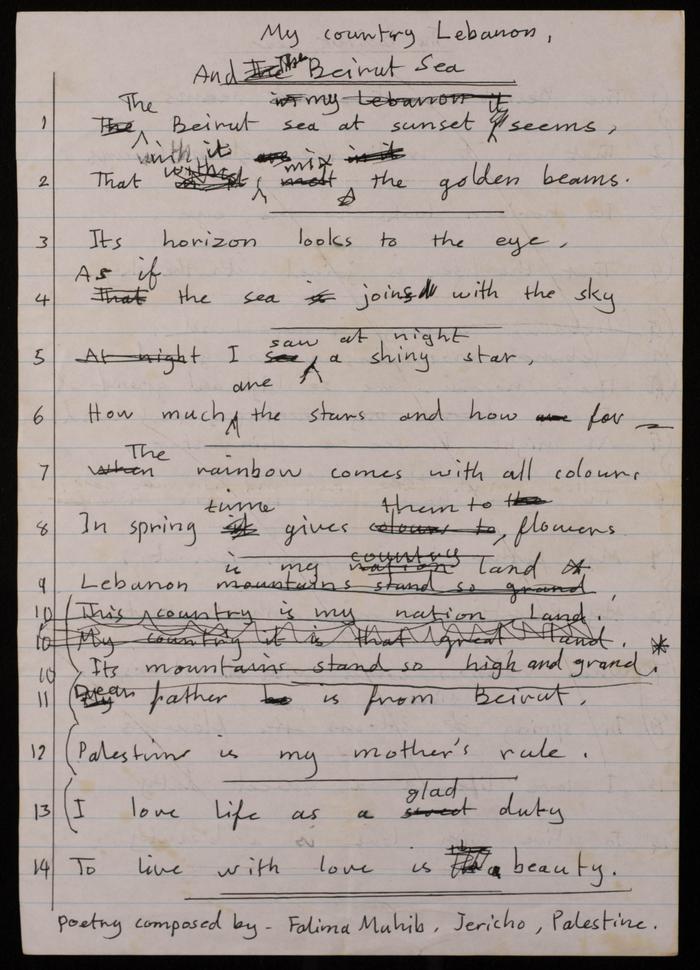 My country Lebanon,
And The Beirut Sea
1 The Beirut sea at sunset it seems,
2 That with it mix the golden beams.
3 Its horizon looks to the eye,
4 As if the sea joins with the sky
5 I saw at night a shiny star,
6 How much are the stars and how far
7 The rainbow comes with all colours
8 In spring time gives them to, flowers
9 Lebanon is my country land
10 This country is my nation land.
10 My country it is that great land.
10 Its mountains stand so high and grand.
11 Dear father is from Beirut,
12 Palestine is my mother's rule.
13 I love life as a glad duty
14 To live with love is a beauty.
Poetry composed by - Falima Muhib, Jericho, Palestine.